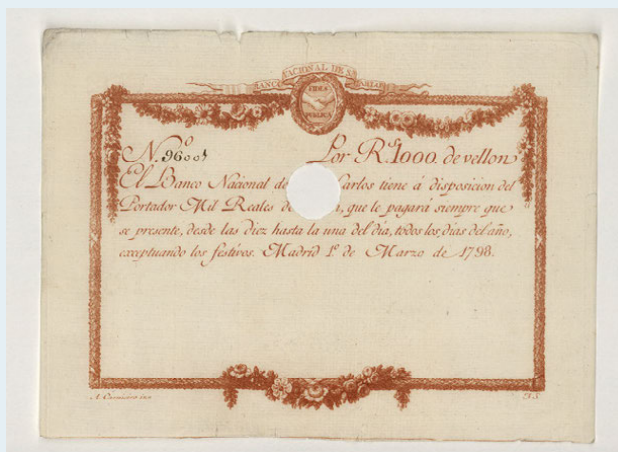 BANCO NACIONAL DE Sn CARLOS
FIDES
PUBLICA
No. 96001 Por Rs. 1000. de vellon
El Banco Nacional de Carlos tiene á disposicion del
Portador Mil Reales de que le pagará siempre que
se presente, desde las diez hasta la una del dia, todos los dias del año,
exceptuando los festivos. Madrid 1º de Marzo de 1798.